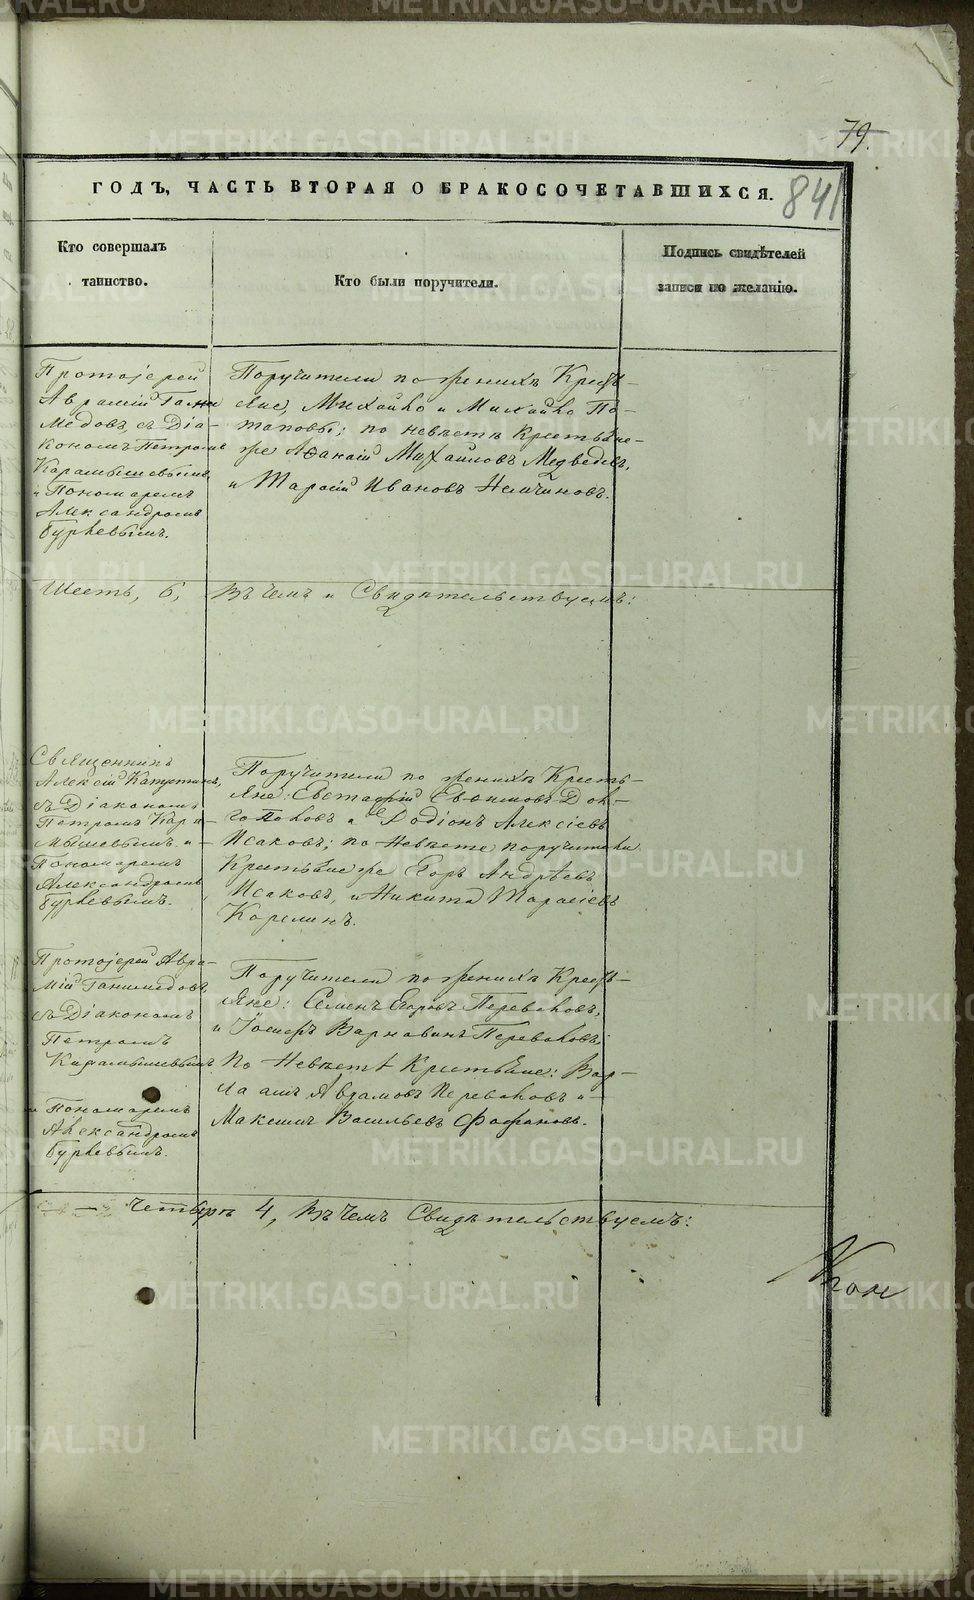 79.
ГОДЪ, ЧАСТЬ ВТОРАЯ О БРАКОСОЧЕТАВШИХСЯ.
841
Кто совершалъ
таинство.
Кто были поручители.
Подпись свидѣтелей
записи по желанію.
Протоіерей
Аврамій Гани
медовъ съ Діа-
кономъ Петромъ
Карамышевымъ
и Пономаремъ
Александромъ
Бурлевымъ.
Поручители по женихѣ Кресть-
яне, Михайло и Михайло По-
таповы; по невѣстѣ Крестьяне-
же Аѳанасій Михайловъ Медведевъ,
и Тарасій Ивановъ Немчиновъ.
Шесть, 6, Въ чемъ и Свидѣтельствуемъ:
Священникъ
Алексій Капустинъ,
съ Діакономъ
Петромъ Кара-
мышевымъ и
Пономаремъ
Александромъ
Бурлевымъ.
Поручители по женихѣ Кресть-
яне: Евстафій Евѳимовъ Дол-
гополовъ и Родіонъ Алексіевъ
Исаковъ; по Невѣсте поручители
Крестьяне же Егоръ Андрѣевъ
Исаковъ, и Никита Тарасіевъ
Корелинъ.
Протоіерей Авра-
мій Ганимедовъ
съ Діакономъ
Петромъ
Карамышевымъ
и Пономаремъ
Александромъ
Бурлевымъ.
Поручители по женихѣ Кресть-
яне: Семенъ Егоровъ Переваловъ,
и Іосифъ Варнавинъ Переваловъ;
По Невѣстѣ Крестьяне: Вар-
лаамъ Авдамовъ Переваловъ и
Максимъ Васильевъ Фофановъ.
Четыре 4, Въ чемъ Свидѣтельствуемъ:
METRIKI.GASO-URAL.RU